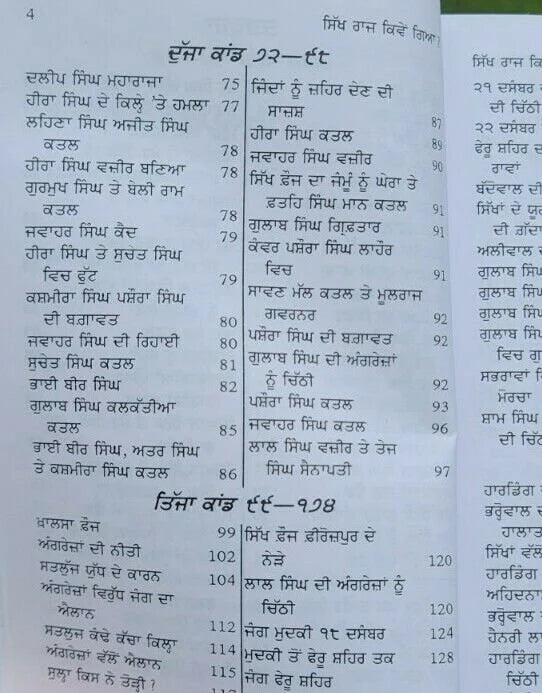 4
ਸਿੱਖ ਰਾਜ ਕਿਵੇਂ ਗਿਆ?
ਦੂੱਜਾ ਕਾਂਡ ੭੨—੯੮
ਦਲੀਪ ਸਿੰਘ ਮਹਾਰਾਜਾ 75
ਹੀਰਾ ਸਿੰਘ ਦੇ ਕਿਲ੍ਹੇ 'ਤੇ ਹਮਲਾ 77
ਲਹਿਣਾ ਸਿੰਘ ਅਜੀਤ ਸਿੰਘ
ਕਤਲ 78
ਹੀਰਾ ਸਿੰਘ ਵਜ਼ੀਰ ਬਣਿਆ 78
ਗੁਰਮੁਖ ਸਿੰਘ ਤੇ ਬੇਲੀ ਰਾਮ
ਕਤਲ 78
ਜਵਾਹਰ ਸਿੰਘ ਕੈਦ 79
ਹੀਰਾ ਸਿੰਘ ਤੇ ਸੁਚੇਤ ਸਿੰਘ
ਵਿਚ ਫੁੱਟ 79
ਕਸ਼ਮੀਰਾ ਸਿੰਘ ਪਸ਼ੌਰਾ ਸਿੰਘ
ਦੀ ਬਗ਼ਾਵਤ 80
ਜਵਾਹਰ ਸਿੰਘ ਦੀ ਰਿਹਾਈ 80
ਸੁਚੇਤ ਸਿੰਘ ਕਤਲ 81
ਭਾਈ ਬੀਰ ਸਿੰਘ 82
ਗੁਲਾਬ ਸਿੰਘ ਕਲਕੱਤੀਆ
ਕਤਲ 85
ਭਾਈ ਬੀਰ ਸਿੰਘ, ਅਤਰ ਸਿੰਘ
ਤੇ ਕਸ਼ਮੀਰਾ ਸਿੰਘ ਕਤਲ 86
ਜਿੰਦਾਂ ਨੂੰ ਜ਼ਹਿਰ ਦੇਣ ਦੀ
ਸਾਜ਼ਸ਼ 87
ਹੀਰਾ ਸਿੰਘ ਕਤਲ 89
ਜਵਾਹਰ ਸਿੰਘ ਵਜ਼ੀਰ 90
ਸਿੱਖ ਫ਼ੌਜ ਦਾ ਜੰਮੂੰ ਨੂੰ ਘੇਰਾ ਤੇ
ਫ਼ਤਹਿ ਸਿੰਘ ਮਾਨ ਕਤਲ 91
ਗੁਲਾਬ ਸਿੰਘ ਗ੍ਰਿਫ਼ਤਾਰ 91
ਕੰਵਰ ਪਸ਼ੌਰਾ ਸਿੰਘ ਲਾਹੌਰ
ਵਿਚ 91
ਸਾਵਣ ਮੱਲ ਕਤਲ ਤੇ ਮੂਲਰਾਜ
ਗਵਰਨਰ 92
ਪਸ਼ੌਰਾ ਸਿੰਘ ਦੀ ਬਗ਼ਾਵਤ 92
ਗੁਲਾਬ ਸਿੰਘ ਦੀ ਅੰਗਰੇਜ਼ਾਂ
ਨੂੰ ਚਿੱਠੀ 92
ਪਸ਼ੌਰਾ ਸਿੰਘ ਕਤਲ 93
ਜਵਾਹਰ ਸਿੰਘ ਕਤਲ 96
ਲਾਲ ਸਿੰਘ ਵਜ਼ੀਰ ਤੇ ਤੇਜ
ਸਿੰਘ ਸੈਨਾਪਤੀ 97
ਤਿੱਜਾ ਕਾਂਡ ੯੯—੧੭੪
ਖ਼ਾਲਸਾ ਫ਼ੌਜ 99
ਅੰਗਰੇਜ਼ਾਂ ਦੀ ਨੀਤੀ 102
ਸਤਲੁਜ ਯੁੱਧ ਦੇ ਕਾਰਨ 104
ਅੰਗਰੇਜ਼ਾਂ ਵਿਰੁੱਧ ਜੰਗ ਦਾ
ਐਲਾਨ 112
ਸਤਲੁਜ ਕੰਢੇ ਕੱਚਾ ਕਿਲ੍ਹਾ 114
ਅੰਗਰੇਜ਼ਾਂ ਵੱਲੋਂ ਐਲਾਨ 115
ਸੁਲ੍ਹਾ ਕਿਸ ਨੇ ਤੋੜੀ ?
ਸਿੱਖ ਫ਼ੌਜ ਫ਼ੀਰੋਜ਼ਪੁਰ ਦੇ
ਨੇੜੇ 120
ਲਾਲ ਸਿੰਘ ਦੀ ਅੰਗਰੇਜ਼ਾਂ ਨੂੰ
ਚਿੱਠੀ 120
ਜੰਗ ਮੁਦਕੀ ੧੮ ਦਸੰਬਰ 124
ਮੁਦਕੀ ਤੋਂ ਫੇਰੂ ਸ਼ਹਿਰ ਤਕ 128
ਜੰਗ ਫੇਰੂ ਸ਼ਹਿਰ
ਸਿੱਖ ਰਾਜ
੨੧ ਦਸੰਬਰ
ਦੀ ਚਿੱਠੀ
੨੨ ਦਸੰਬਰ
ਫੇਰੂ ਸ਼ਹਿਰ
ਰਾਵਾਂ
ਬੱਦੋਵਾਲ ਦੀ
ਸਿੱਖਾਂ ਦੇ
ਦੀ ਗ਼ੱਦਾ
ਅਲੀਵਾਲ
ਗੁਲਾਬ ਸਿੰਘ
ਗੁਲਾਬ ਸਿੰਘ
ਗੁਲਾਬ ਸਿੰ
ਗੁਲਾਬ ਸਿੰ
ਵਿਚ
ਸਭਰਾਵਾਂ
ਮੋਰਚਾ
ਸ਼ਾਮ ਸਿੰਘ
ਦੀ ਚਿੱ
ਹਾਰਡਿੰਗ
ਭਰ੍ਹੋਵਾਲ
ਹਾਲਾਤ
ਸਿੱਖਾਂ ਵੱਲੋਂ
ਹਾਰਡਿੰਗ
ਅਹਿਦਨਾ
ਭਰ੍ਹੋਵਾਲ
ਹੈਨਰੀ ਲਾ
ਹਾਰਡਿੰਗ
ਚਿੱਠੀ